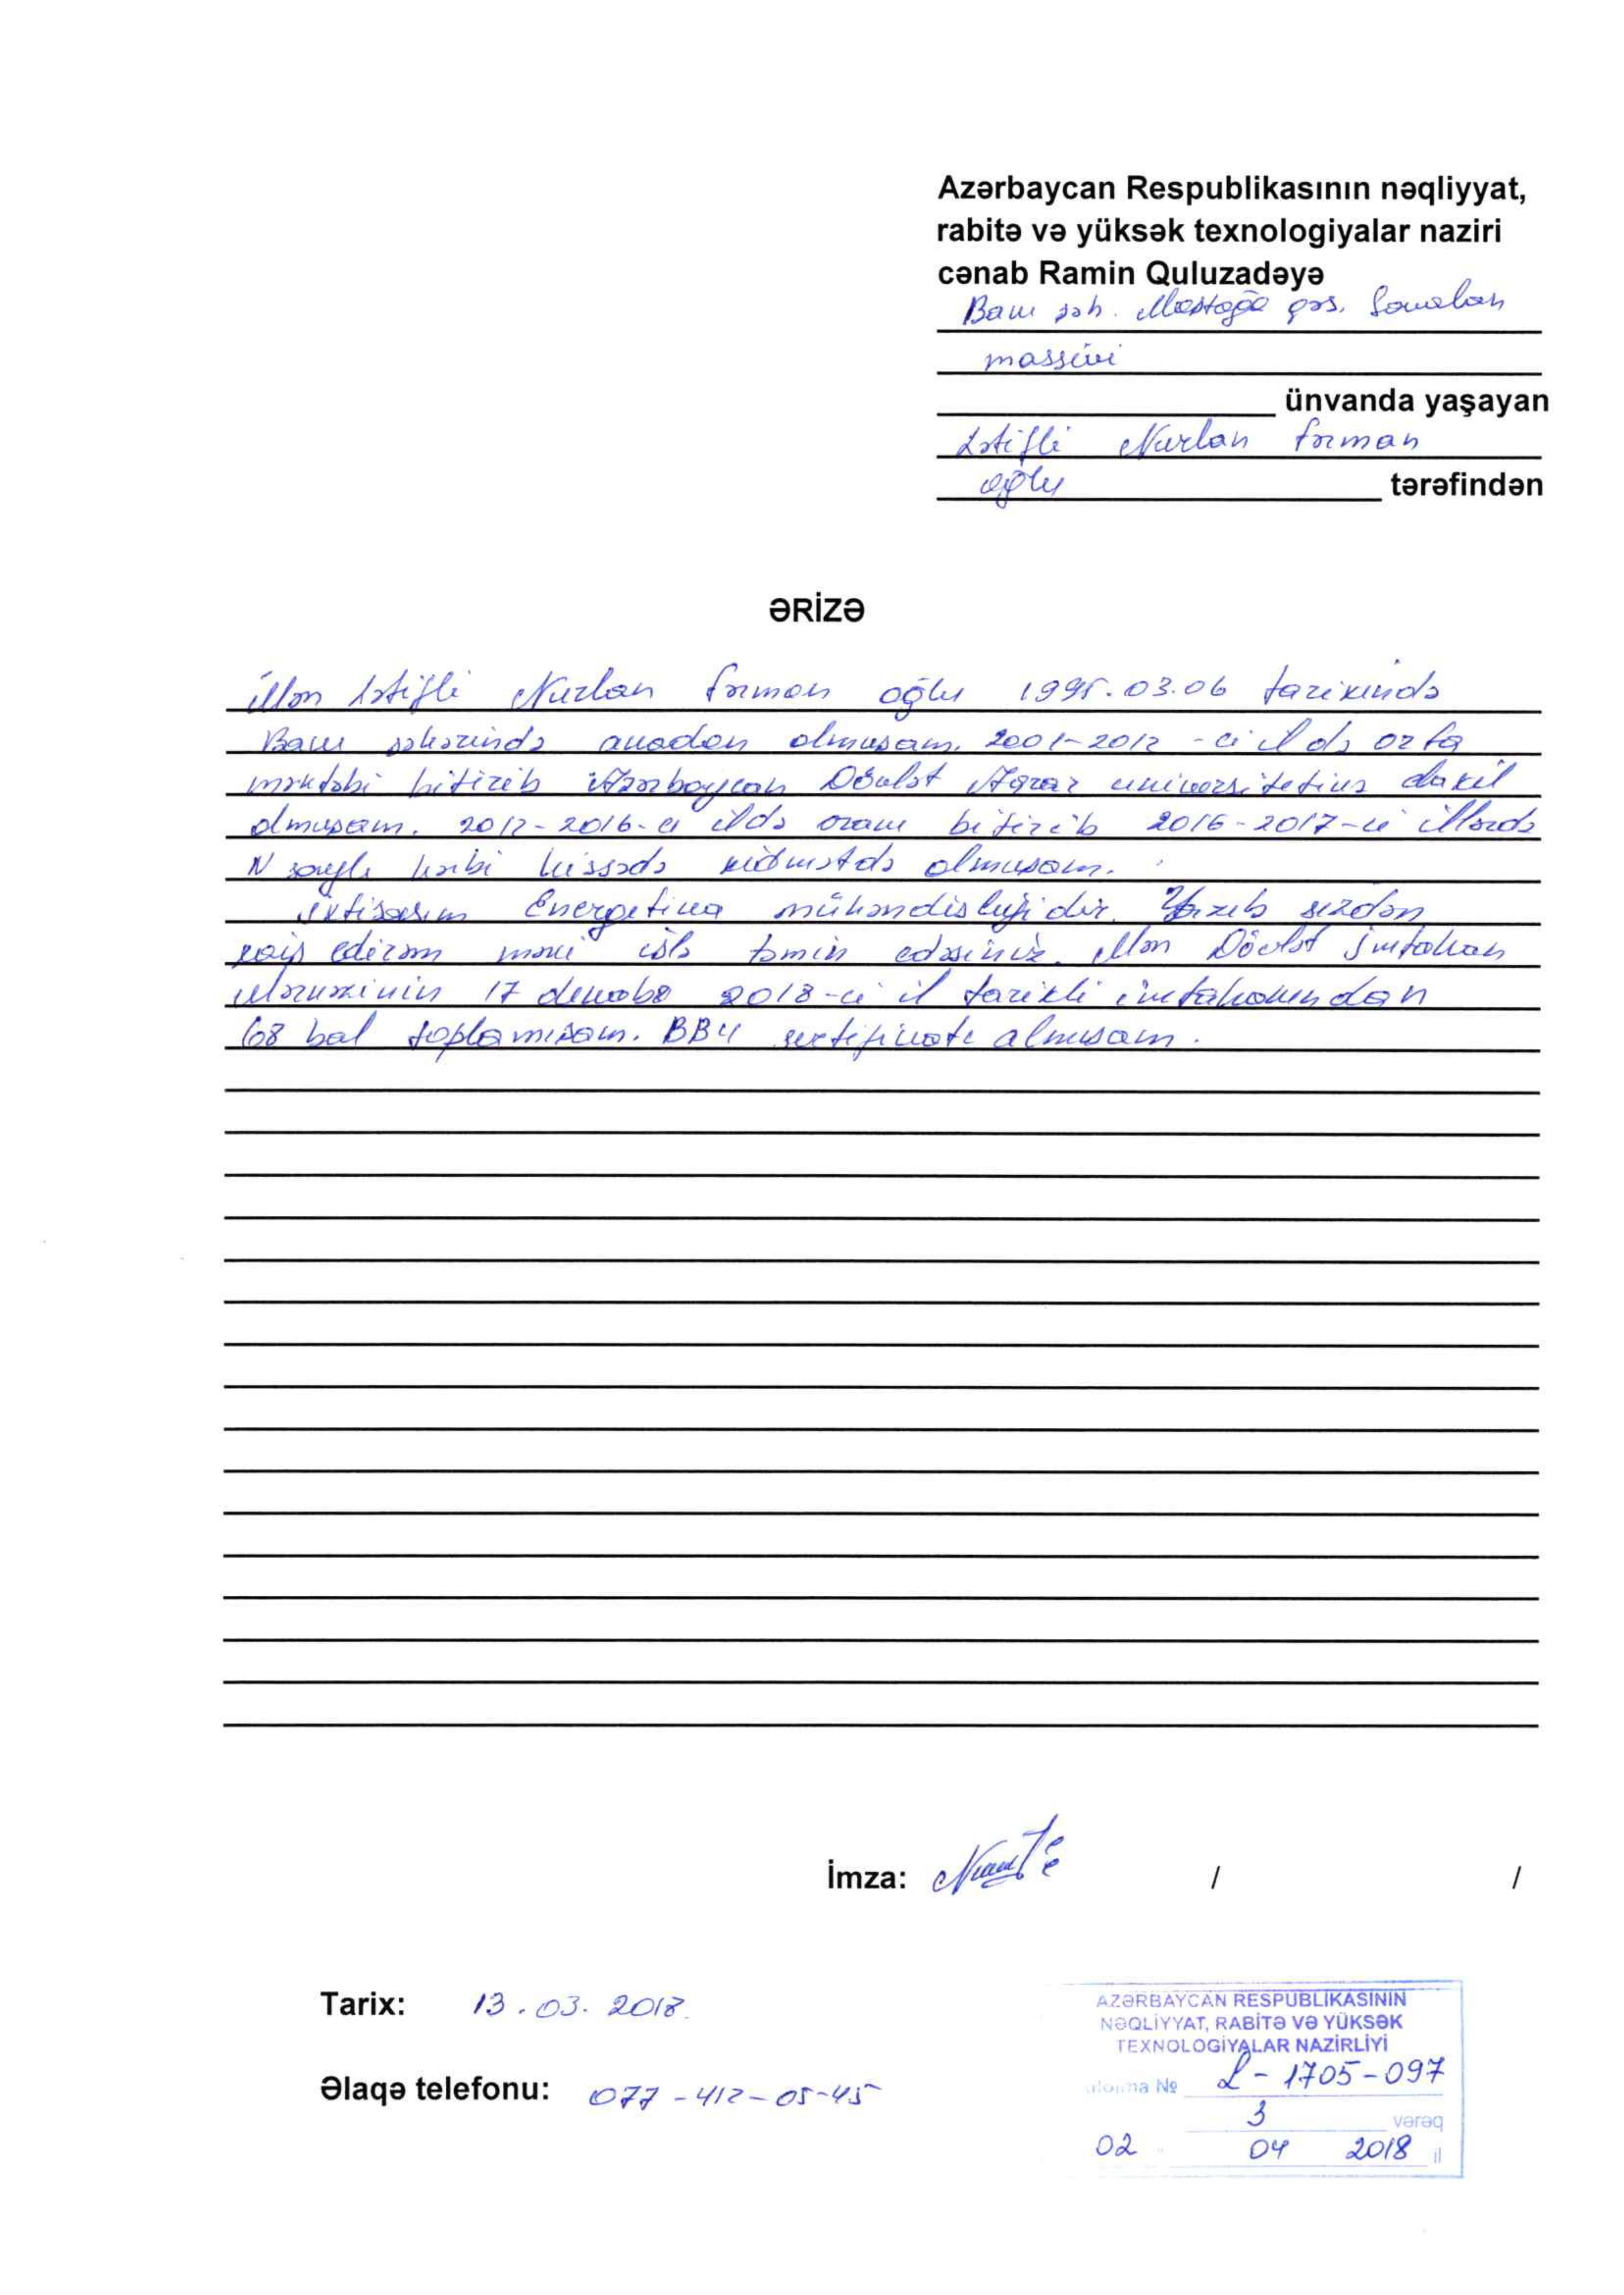 Azərbaycan Respublikasının nəqliyyat,
rabitə və yüksək texnologiyalar naziri
cənab Ramin Quluzadəyə
Bakı şəh. Maştağa qəs. Savalan
massivi
ünvanda yaşayan
Lətifli Nurlan Fərman
oğlu tərəfindən
ƏRİZƏ
Mən Lətifli Nurlan Fərman oğlu 1995.03.06 tarixində
Bakı şəhərində anadan olmuşam. 2001-2012 -ci ildə orta
məktəbi bitirib Azərbaycan Dövlət Aqrar universitetinə daxil
olmuşam. 2012-2016-cı ildə oranı bitirib 2016-2017-ci illərdə
N saylı hərbi hissədə xidmətdə olmuşam.
İxtisasım Energetika mühəndisliyidir. Yazıb sizdən
xaiş edirəm məni işlə təmin edəsiniz. Mən Dövlət İmtahan
Mərkəzinin 17 dekabr 2018-ci il tarixli imtahanından
68 bal toplamışam. BB4 sertifikatı almışam.
İmza: / /
Tarix: 13.03.2018.
Əlaqə telefonu: 077-412-05-45
AZƏRBAYCAN RESPUBLİKASININ
NƏQLİYYAT, RABİTƏ VƏ YÜKSƏK
TEXNOLOGİYALAR NAZİRLİYİ
№ L-1705-097
3 vərəq
02 04 2018 il